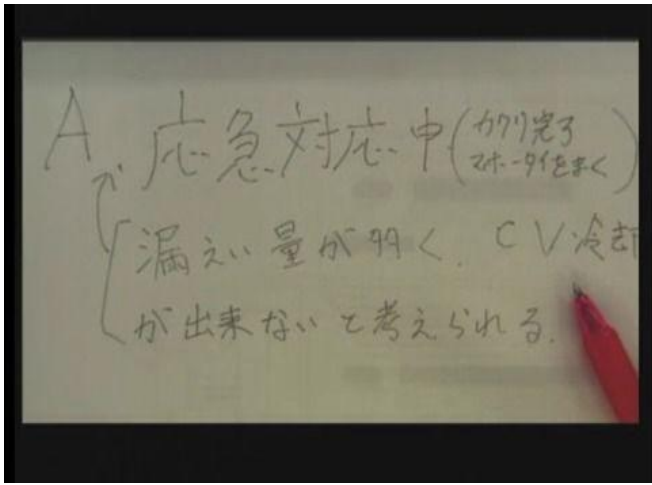 A 応急対応中(カクリ完了
スホータイをまく)
漏えい量が多く. CV冷却
が出来ないと考えられる.